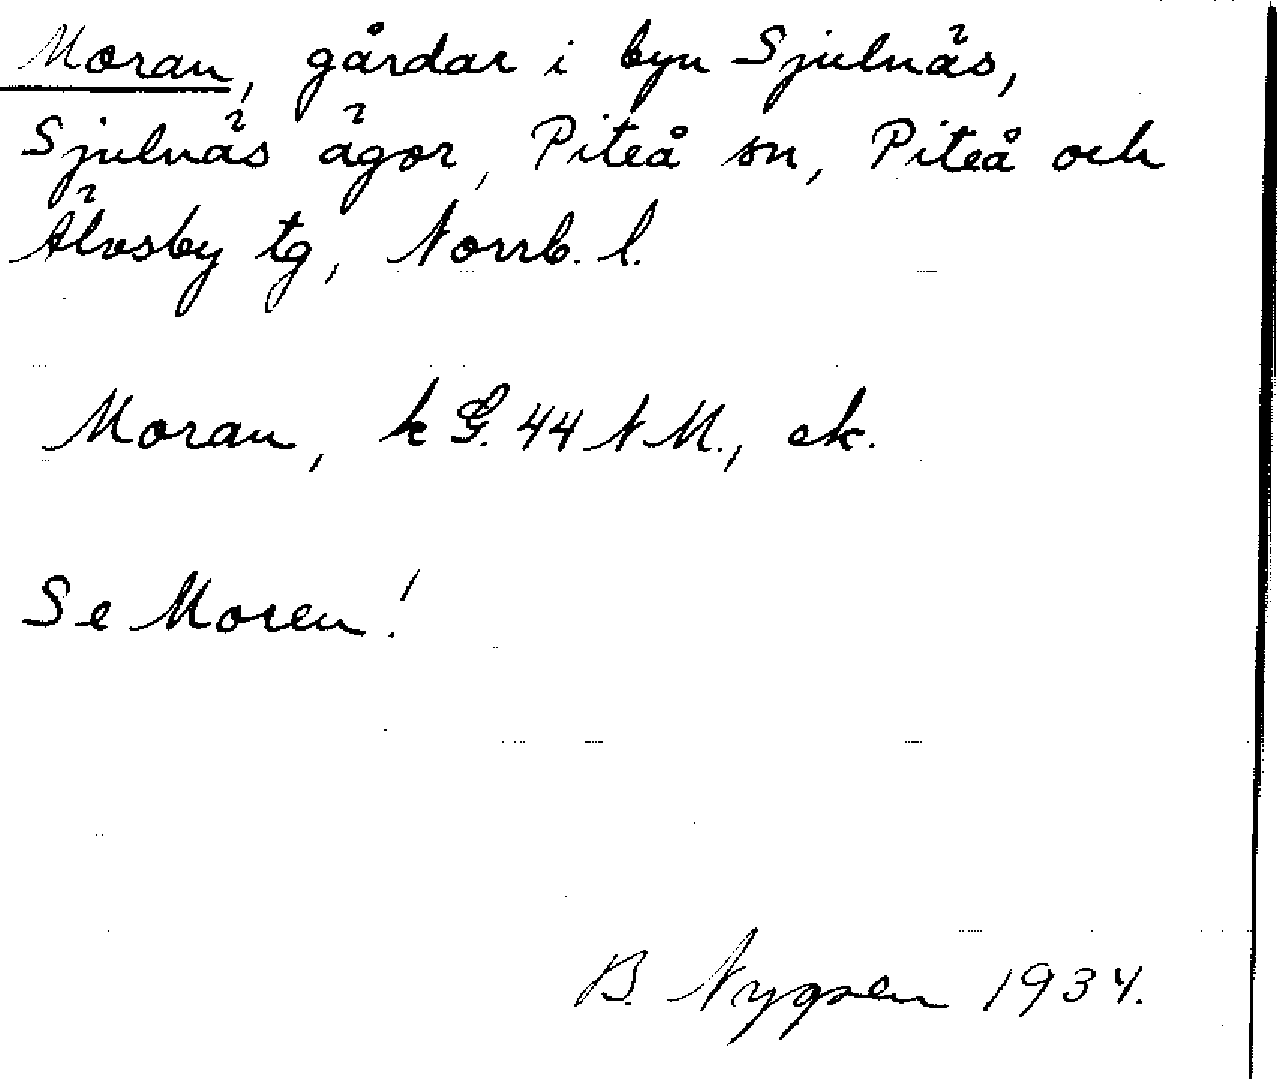 Moran, gårdar i byn Sjulnäs,
Sjulnäs ägor, Piteå sn, Piteå och
Älvsby tg, Norrb. l.
Moran, k G. 44 N M., ek.
Se Moren!
B. Nygren 1934.